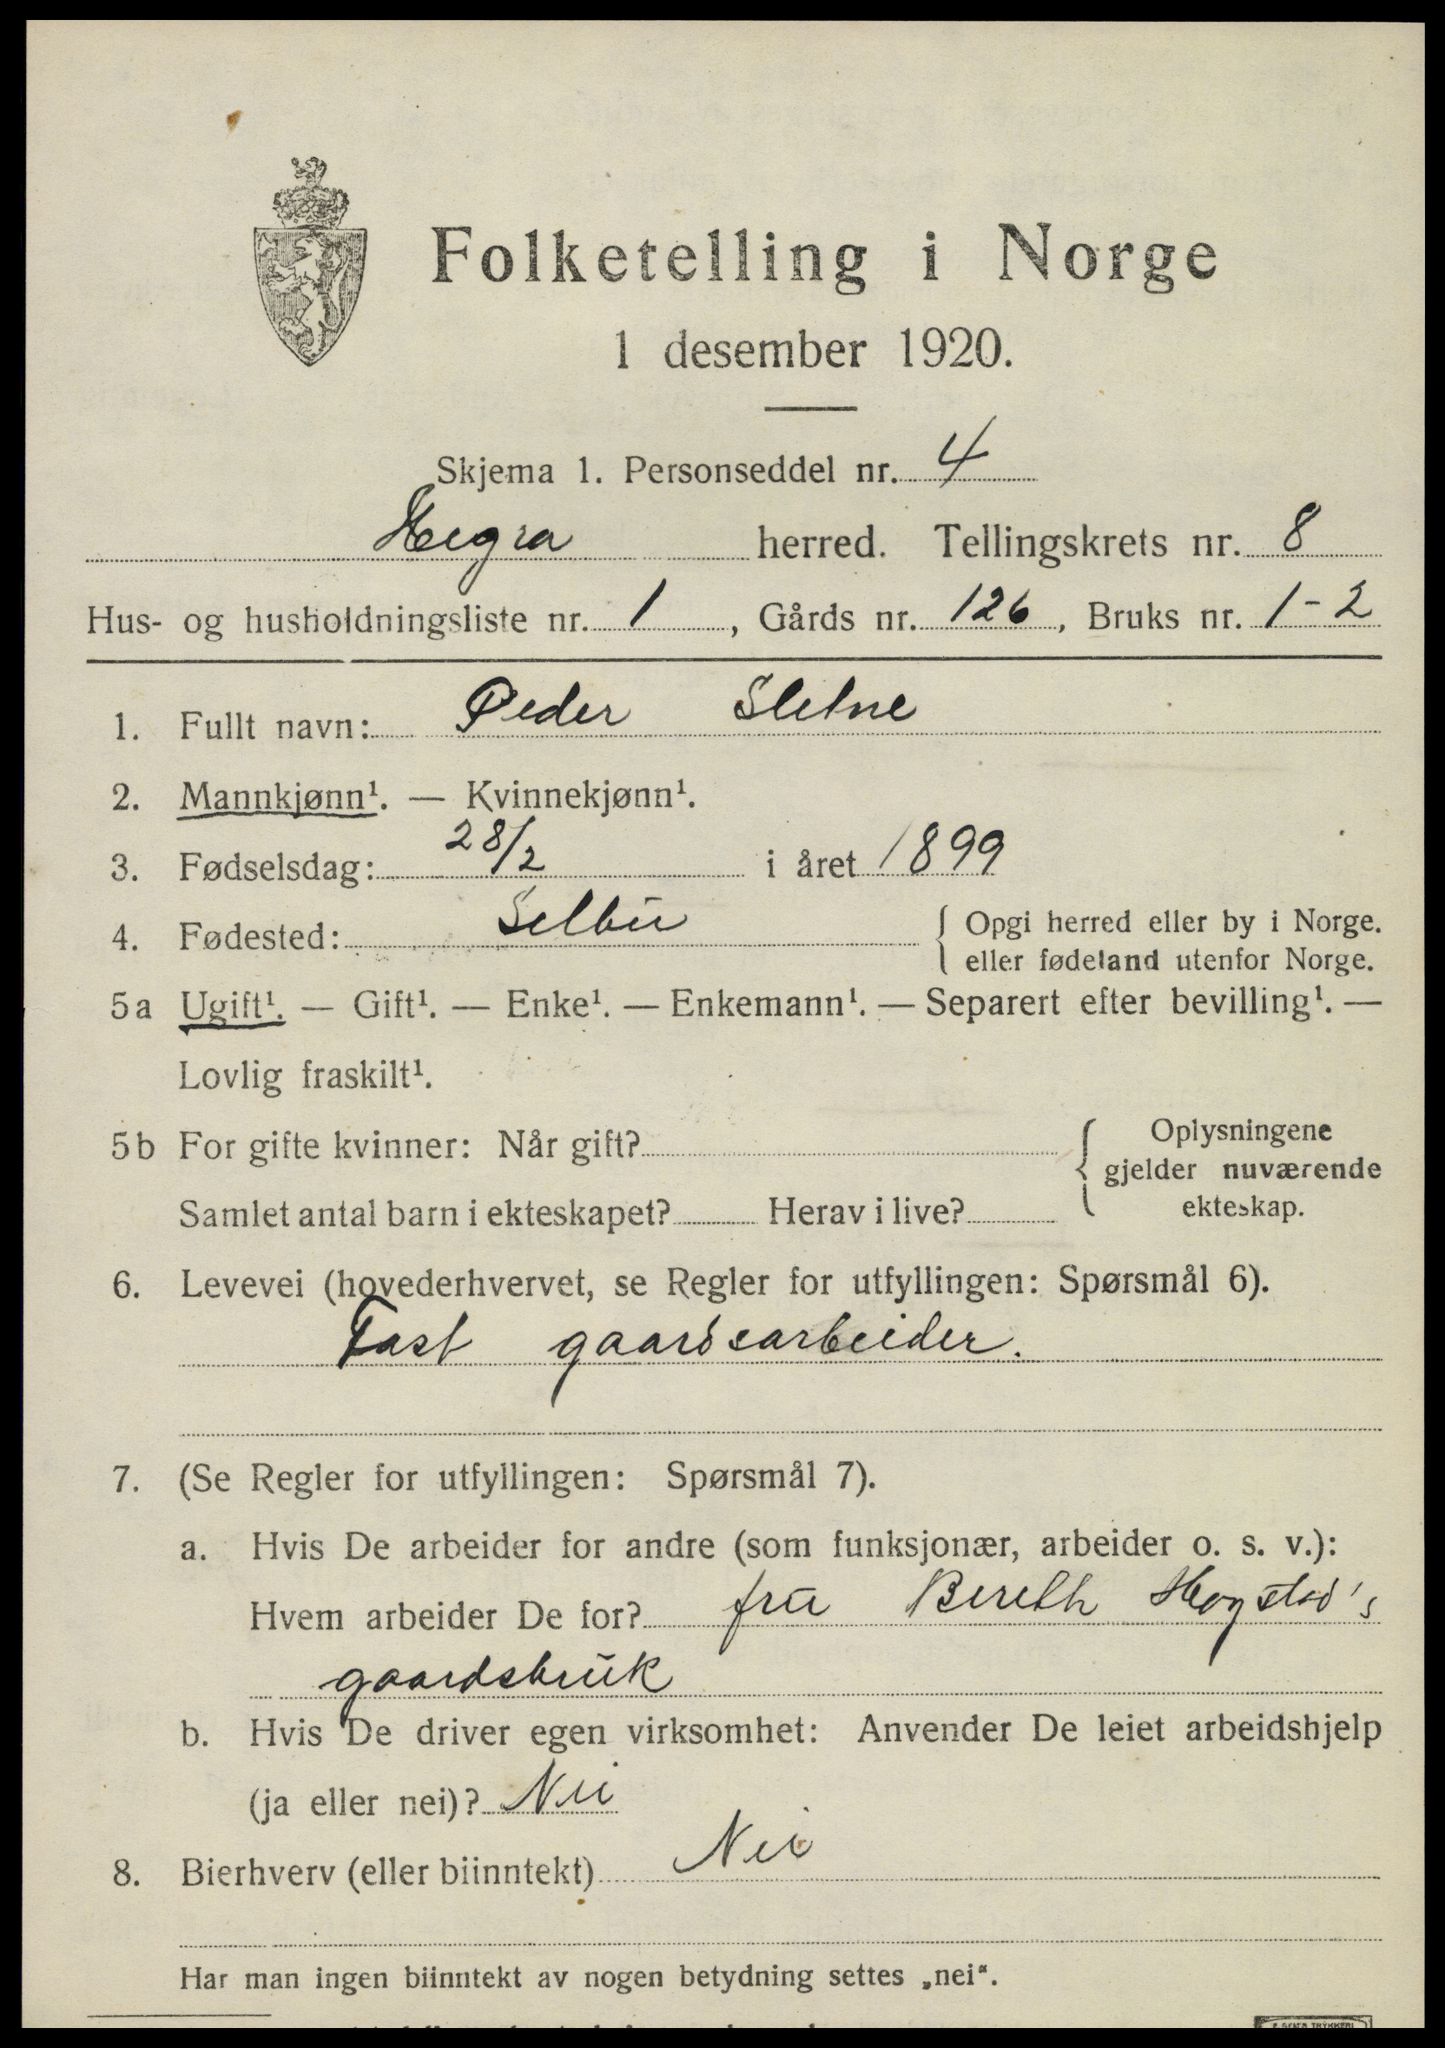 Folketelling i Norge
1 desember 1920.
Skjema 1. Personseddel nr. 4
Hegra herred. Tellingskrets nr. 8
Hus- og husholdningsliste nr. 1, Gårds nr. 126, Bruks nr. 1-2
1. Fullt navn: Peder Sletne
2. Mannkjønn¹. — Kvinnekjønn¹.
3. Fødselsdag: 28/2 i året 1899
4. Fødested: Selbu { Opgi herred eller by i Norge.
eller fødeland utenfor Norge.
5a Ugift¹. — Gift¹. — Enke¹. — Enkemann¹. — Separert efter bevilling¹. —
Lovlig fraskilt¹.
5b For gifte kvinner: Når gift? { Oplysningene
gjelder nuværende
Samlet antal barn i ekteskapet? Herav i live? ekteskap.
6. Levevei (hovederhvervet, se Regler for utfyllingen: Spørsmål 6).
Fast gaardsarbeider.
7. (Se Regler for utfyllingen: Spørsmål 7).
a. Hvis De arbeider for andre (som funksjonær, arbeider o. s. v.):
Hvem arbeider De for? fru Bereth Hogstad's
gaardsbruk
b. Hvis De driver egen virksomhet: Anvender De leiet arbeidshjelp
(ja eller nei)? Nei
8. Bierhverv (eller biinntekt) Nei
Har man ingen biinntekt av nogen betydning settes „nei“.